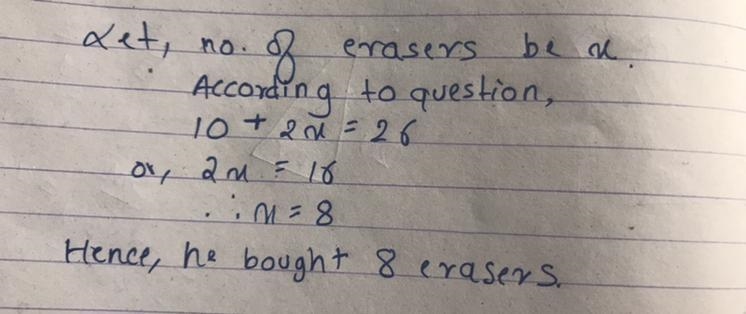 Let, no. of erasers be x.
According to question,
10 + 2x = 26
or, 2x = 16
∴ x = 8
Hence, he bought 8 erasers.